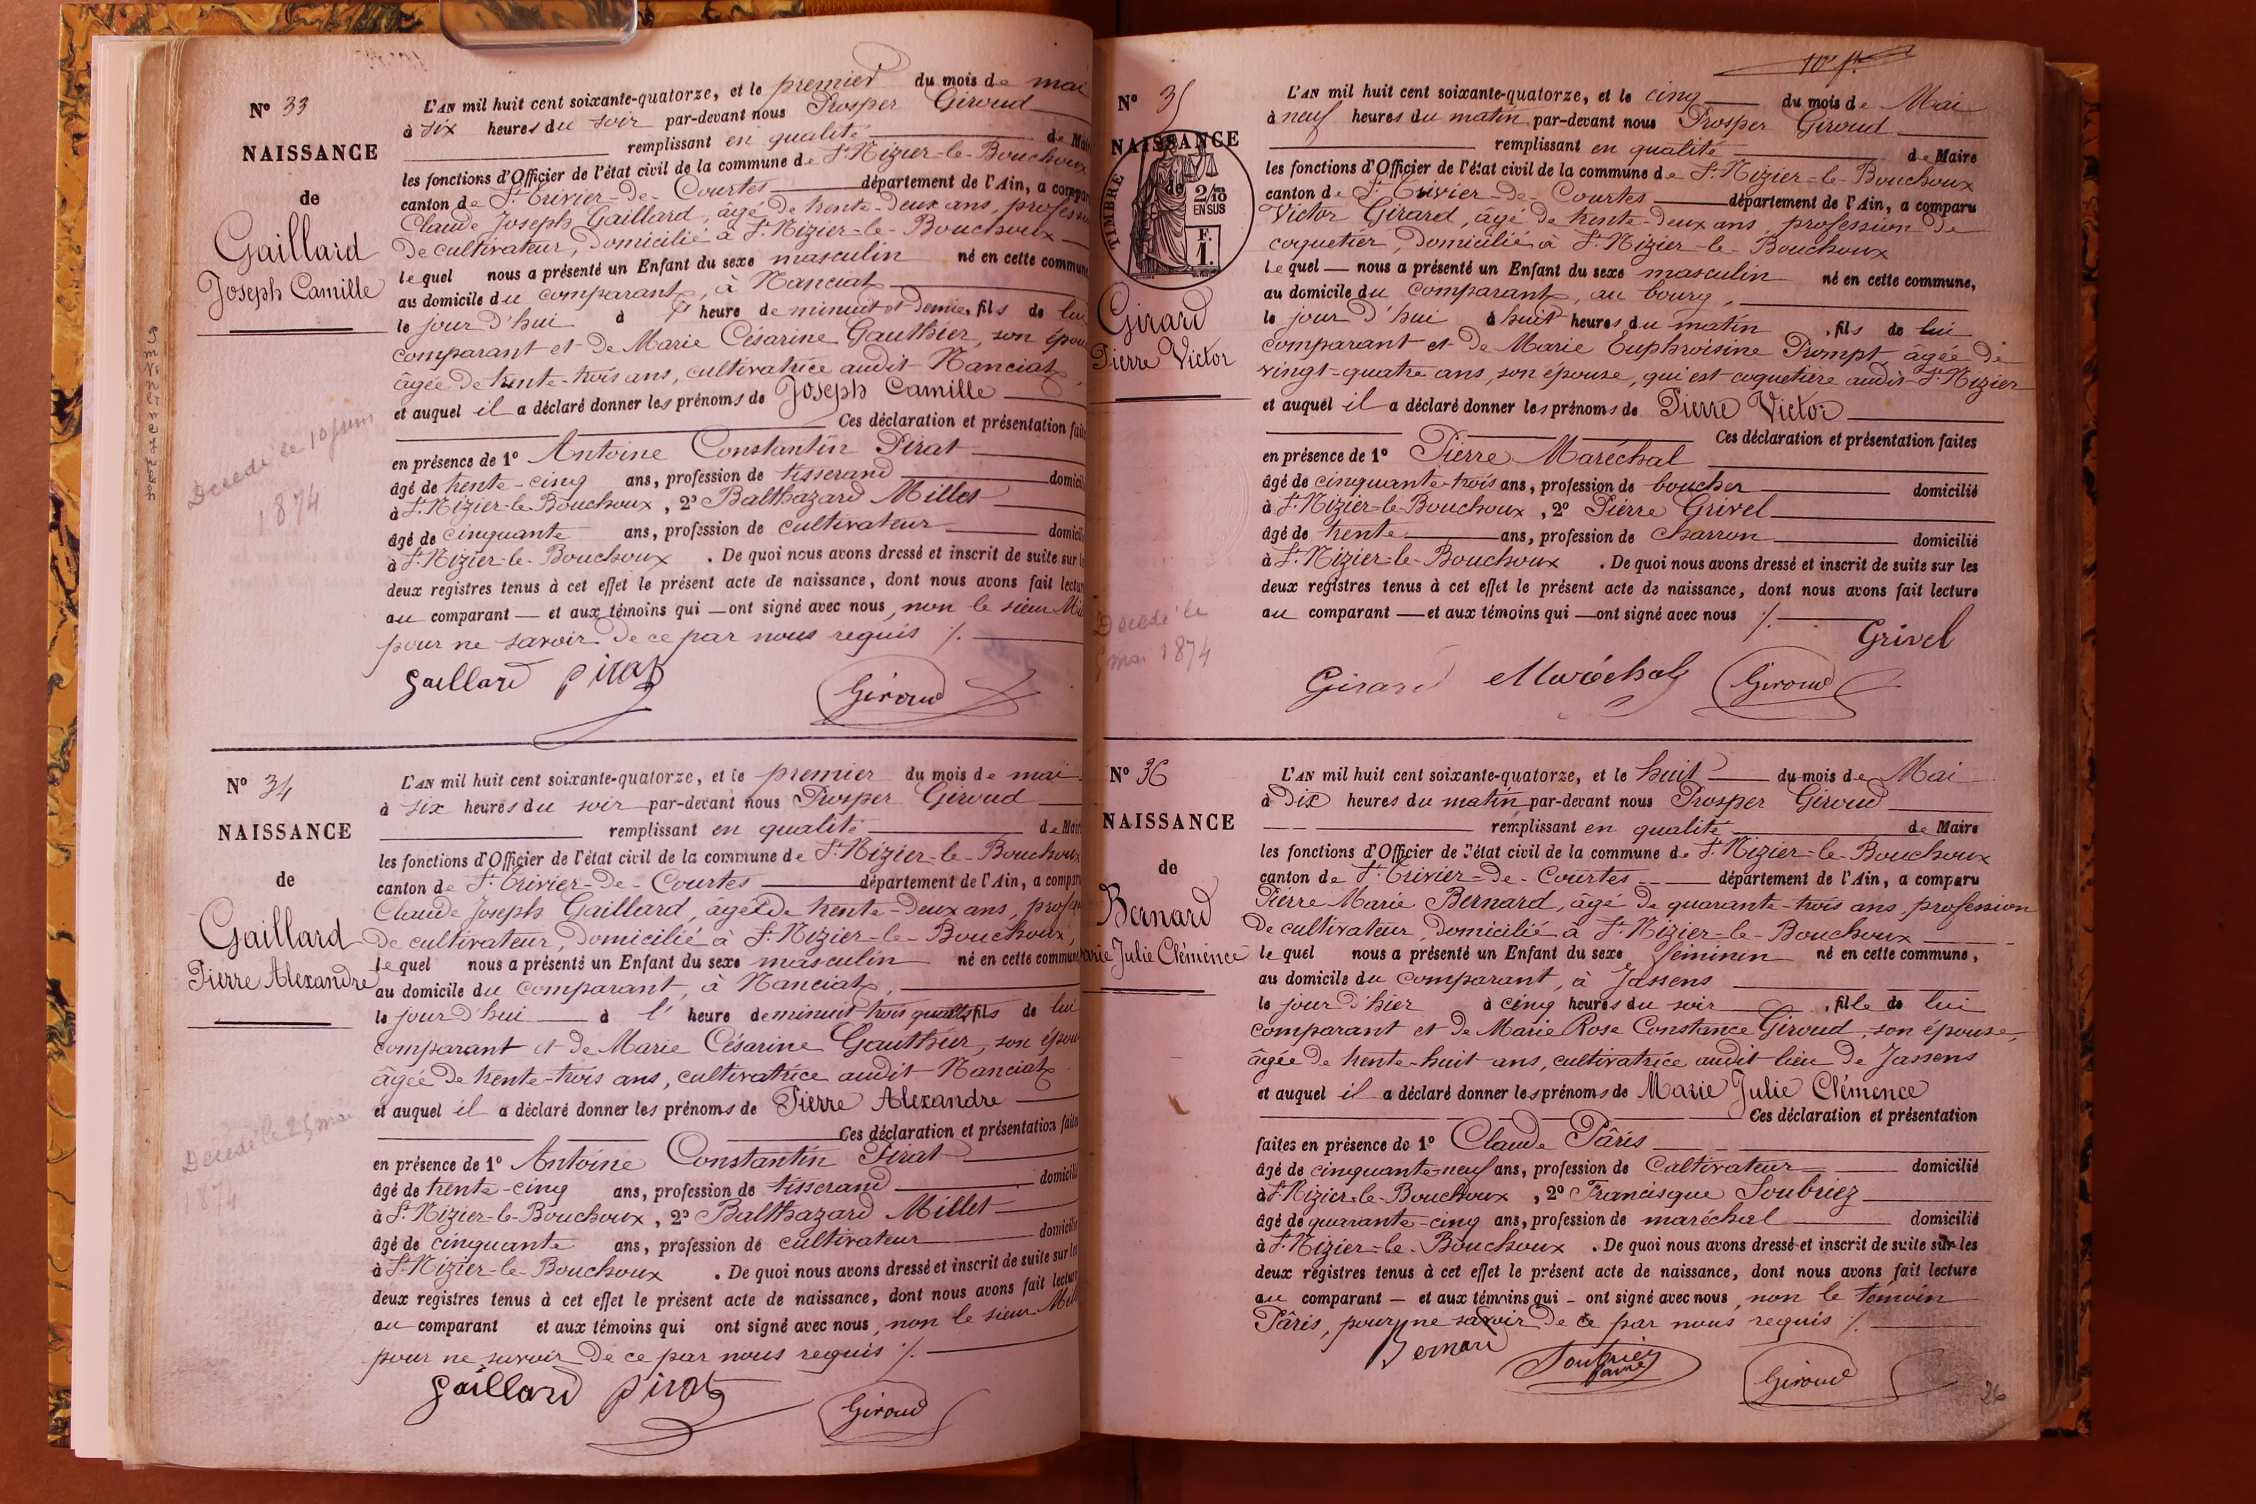 Nº 33
NAISSANCE
de
Gaillard
Joseph Camille
Décédé le 10 juin
1874
L'AN mil huit cent soixante-quatorze, et le premier du mois de mai
à six heures du soir par-devant nous Prosper Giroud
remplissant en qualité de Mai
les fonctions d'Officier de l'état civil de la commune de St Nizier-le-Bouchoux
canton de St Trivier-de-Courtes département de l'Ain, a compar
Claude Joseph Gaillard, âgé de trente-deux ans, professi
de cultivateur, domicilié à St Nizier-le-Bouchoux
lequel nous a présenté un Enfant du sexe masculin né en cette commune
au domicile du comparant, à Nanciat
le jour d'hui à heure de minuit et demie, fils de lui
comparant et de Marie Césarine Gauthier, son épou
âgée de trente-trois ans, cultivatrice audit Nanciat,
et auquel il a déclaré donner les prénoms de Joseph Camille
Ces déclaration et présentation faite
en présence de 1º Antoine Constantin Pirat
âgé de trente-cinq ans, profession de tisserand domicili
à St Nizier-le-Bouchoux, 2º Balthazard Millet
âgé de cinquante ans, profession de cultivateur domicili
à St Nizier-le-Bouchoux. De quoi nous avons dressé et inscrit de suite sur le
deux registres tenus à cet effet le présent acte de naissance, dont nous avons fait lectur
au comparant et aux témoins qui ont signé avec nous, non le sieur Mil
pour ne savoir de ce par nous requis ./.
Gaillard Pirat Giroud
Nº 34
NAISSANCE
de
Gaillard
Pierre Alexandre
Décédé le 25 mai
1874
L'AN mil huit cent soixante-quatorze, et le premier du mois de mai
à six heures du soir par-devant nous Prosper Giroud
remplissant en qualité de Maire
les fonctions d'Officier de l'état civil de la commune de St Nizier-le-Bouchoux
canton de St Trivier-de-Courtes département de l'Ain, a compar
Claude Joseph Gaillard, âgé de trente-deux ans, profes
de cultivateur, domicilié à St Nizier-le-Bouchoux,
lequel nous a présenté un Enfant du sexe masculin né en cette commune
au domicile du comparant, à Nanciat,
le jour d'hui à l' heure de minuit trois quarts, fils de lui
comparant et de Marie Césarine Gauthier, son épou
âgée de trente-trois ans, cultivatrice audit Nanciat
et auquel il a déclaré donner les prénoms de Pierre Alexandre
Ces déclaration et présentation faites
en présence de 1º Antoine Constantin Pirat
âgé de trente-cinq ans, profession de tisserand domicilié
à St Nizier-le-Bouchoux, 2º Balthazard Millet
âgé de cinquante ans, profession de cultivateur domicilié
à St Nizier-le-Bouchoux. De quoi nous avons dressé et inscrit de suite sur les
deux registres tenus à cet effet le présent acte de naissance, dont nous avons fait lecture
au comparant et aux témoins qui ont signé avec nous, non le sieur Mill
pour ne savoir de ce par nous requis ./.
Gaillard Pirat Giroud
Nº 35
NAISSANCE
de
TIMBRE
2/10
EN SUS
F.
1.
Girard
Pierre Victor
Décédé le
mai 1874
L'AN mil huit cent soixante-quatorze, et le cinq du mois de Mai
à neuf heures du matin par-devant nous Prosper Giroud
remplissant en qualité de Maire
les fonctions d'Officier de l'état civil de la commune de St Nizier-le-Bouchoux
canton de St Trivier-de-Courtes département de l'Ain, a comparu
Victor Girard, âgé de trente-deux ans, profession de
coquetier, domicilié à St Nizier-le-Bouchoux
lequel nous a présenté un Enfant du sexe masculin né en cette commune,
au domicile du comparant, au bourg,
le jour d'hui à huit heures du matin, fils de lui
comparant et de Marie Euphroisine Prompt âgée de
vingt-quatre ans, son épouse, qui est coquetière audit St Nizier
et auquel il a déclaré donner les prénoms de Pierre Victor
Ces déclaration et présentation faites
en présence de 1º Pierre Maréchal
âgé de cinquante-trois ans, profession de boucher domicilié
à St Nizier-le-Bouchoux, 2º Pierre Grivel
âgé de trente ans, profession de charron domicilié
à St Nizier-le-Bouchoux. De quoi nous avons dressé et inscrit de suite sur les
deux registres tenus à cet effet le présent acte de naissance, dont nous avons fait lecture
au comparant et aux témoins qui ont signé avec nous ./.
Grivel
Girard Maréchal Giroud
Nº 36
NAISSANCE
de
Bernard
Marie Julie Clémence
L'AN mil huit cent soixante-quatorze, et le huit du mois de Mai
à dix heures du matin par-devant nous Prosper Giroud
remplissant en qualité de Maire
les fonctions d'Officier de l'état civil de la commune de St Nizier-le-Bouchoux
canton de St Trivier-de-Courtes département de l'Ain, a comparu
Pierre Marie Bernard, âgé de quarante-trois ans, profession
de cultivateur, domicilié à St Nizier-le-Bouchoux
lequel nous a présenté un Enfant du sexe féminin né en cette commune,
au domicile du comparant, à Jassens
le jour d'hier à cinq heures du soir, fille de lui
comparant et de Marie Rose Constance Giroud, son épouse,
âgée de trente-huit ans, cultivatrice audit lieu de Jassens
et auquel il a déclaré donner les prénoms de Marie Julie Clémence
Ces déclaration et présentation
faites en présence de 1º Claude Pâris
âgé de cinquante-neuf ans, profession de Cultivateur domicilié
à St Nizier-le-Bouchoux, 2º Francisque Soubriez
âgé de quarante-cinq ans, profession de maréchal domicilié
à St Nizier-le-Bouchoux. De quoi nous avons dressé et inscrit de suite sur les
deux registres tenus à cet effet le présent acte de naissance, dont nous avons fait lecture
au comparant et aux témoins qui ont signé avec nous, non le témoin
Pâris, pour ne savoir de ce par nous requis ./.
Bernard Soubriez Giroud
26